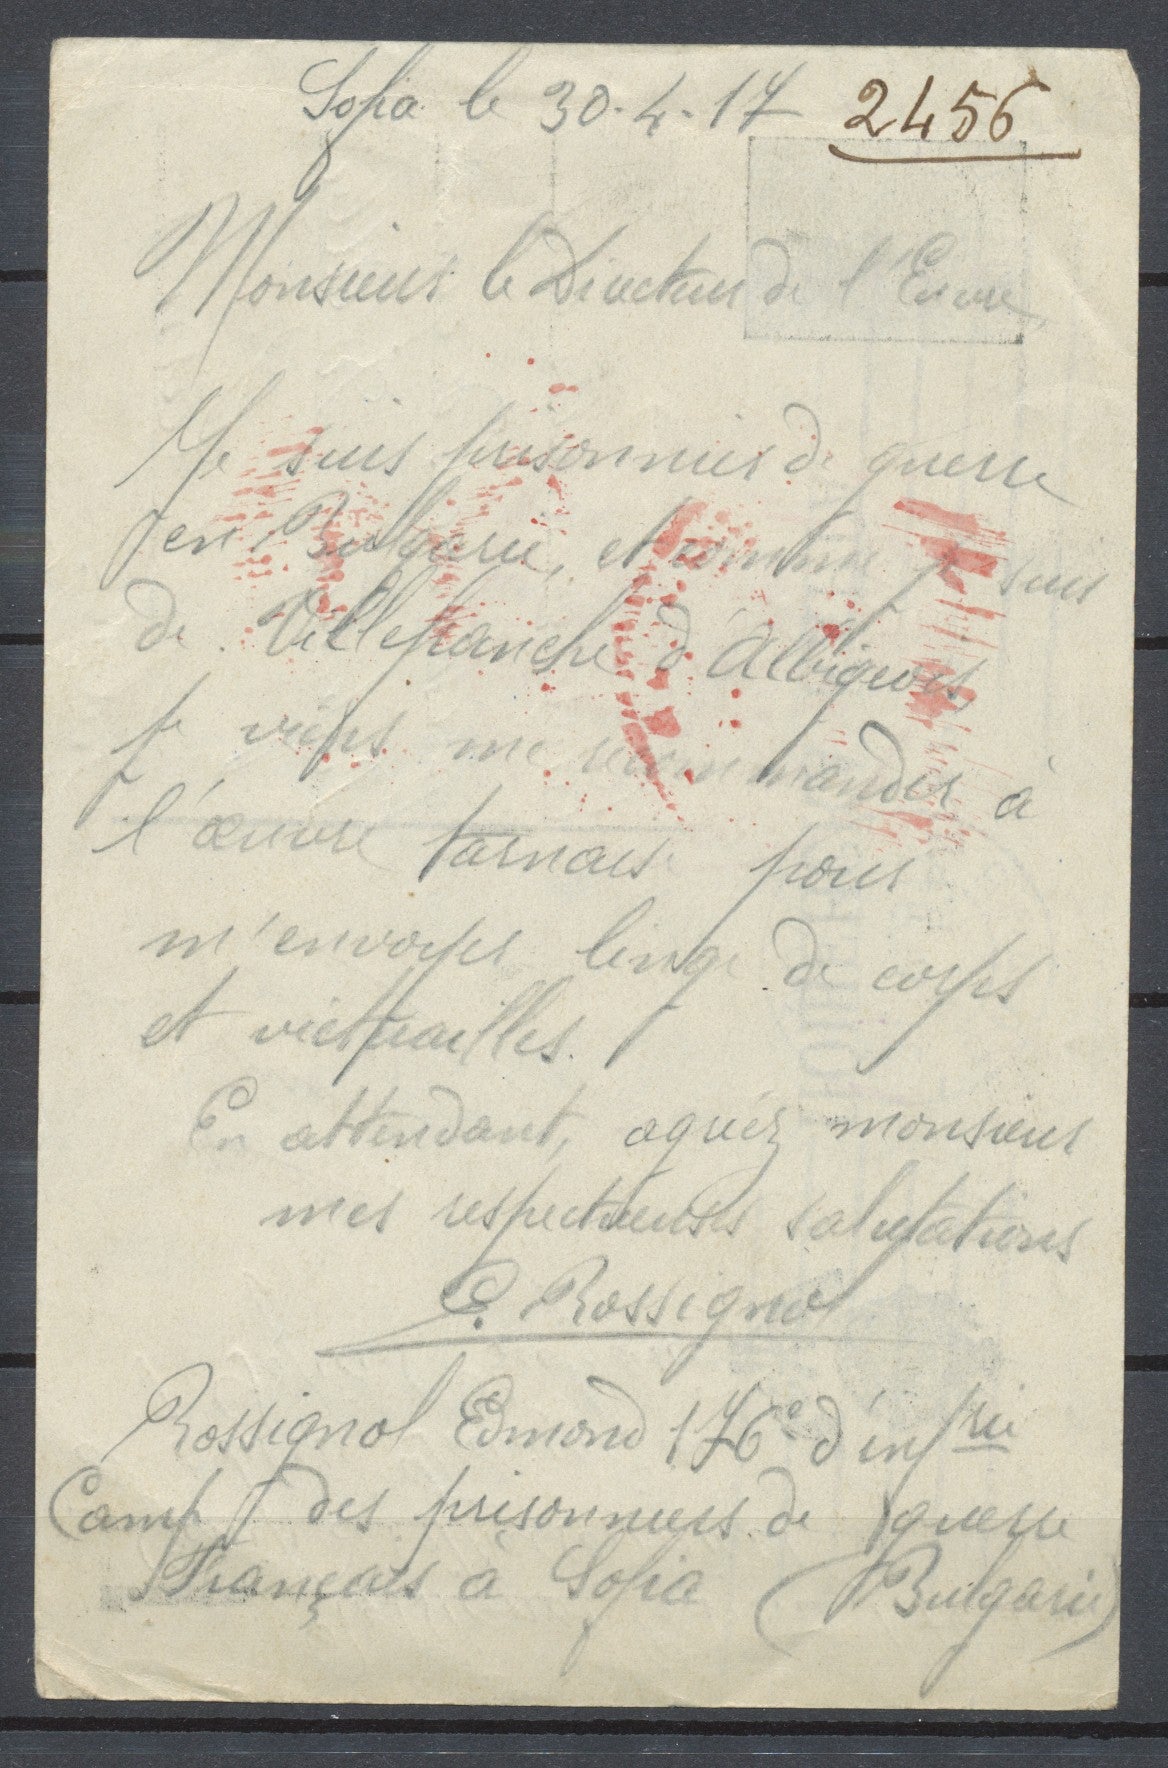 Sofia le 30-4-17 2456
Monsieur le Directeur de l'Œuvre,
Je suis prisonnier de guerre
en Bulgarie, et comme je suis
de Villefranche d'Albigeois,
je viens me recommander à
l'œuvre tarnaise pour
m'envoyer linge de corps
et victuailles.
En attendant, agréez monsieur
mes respectueuses salutations
E. Rossignol
Rossignol Edmond 176e d'infrie
Camp des prisonniers de guerre
Français à Sofia (Bulgarie)